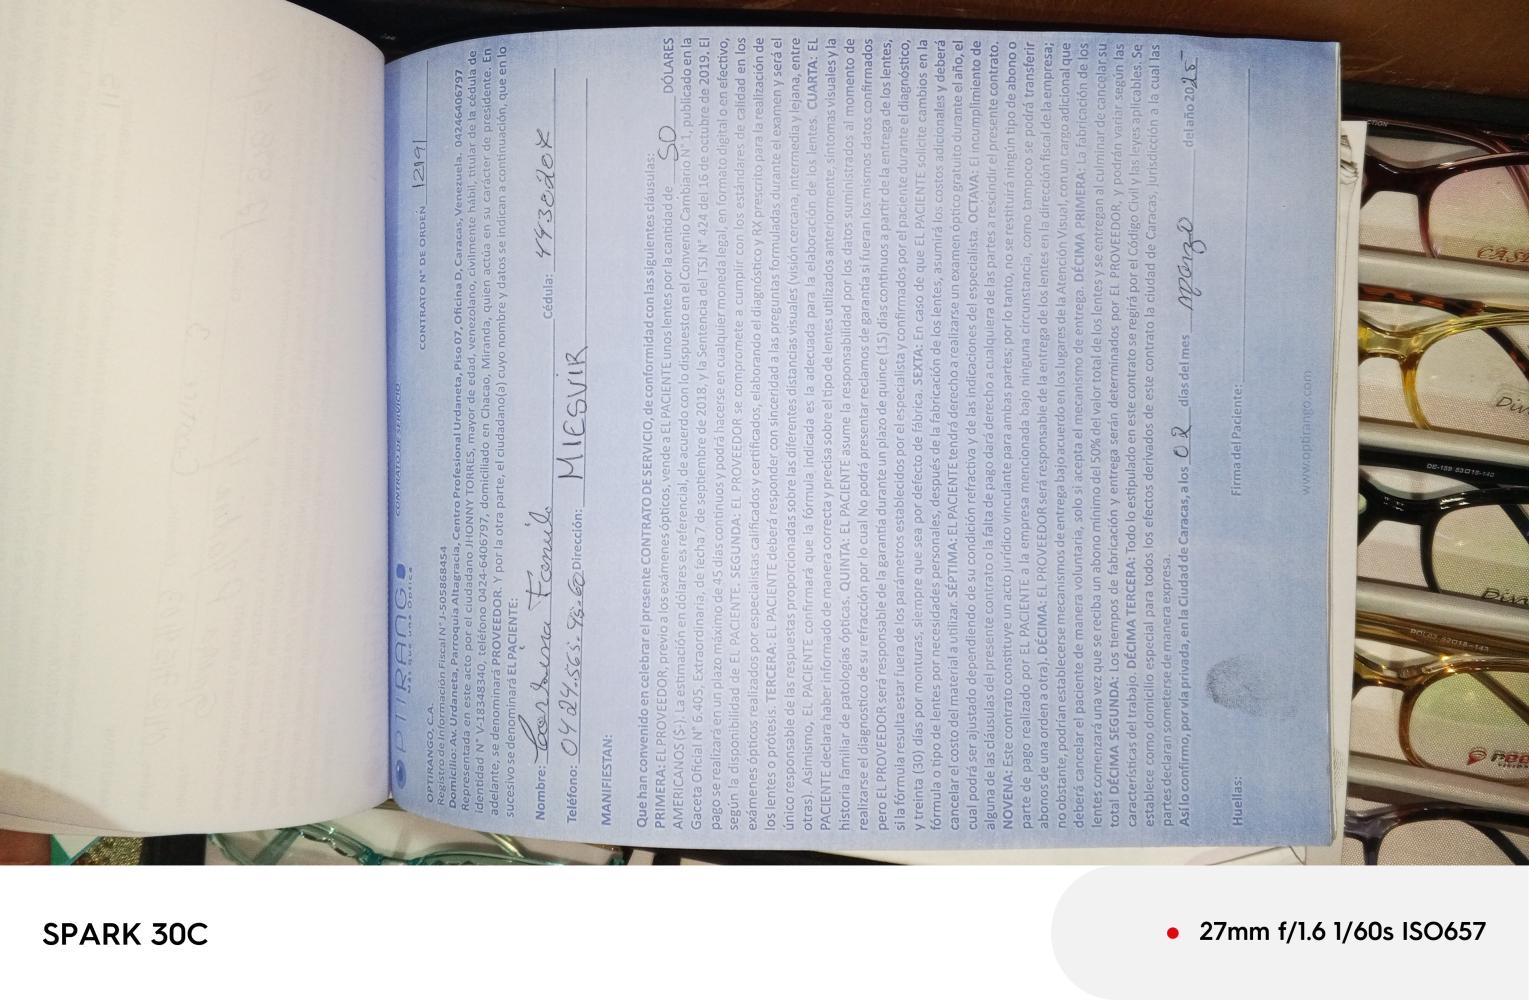 OPTIRANGO
MAS QUE UNA OPTICA
CONTRATO DE SERVICIO
CONTRATO N° DE ORDEN 12191
OPTIRANGO, C.A.
Registro de Información Fiscal N° J-505868454
Domicilio: Av. Urdaneta, Parroquia Altagracia, Centro Profesional Urdaneta, Piso 07, Oficina D, Caracas, Venezuela. 04246406797
Representada en este acto por el ciudadano JHONNY TORRES, mayor de edad, venezolano, civilmente hábil, titular de la cédula de
identidad N° V-18348340, teléfono 0424-6406797, domiciliado en Chacao, Miranda, quien actúa en su carácter de presidente. En
adelante, se denominará PROVEEDOR. Y por la otra parte, el ciudadano(a) cuyo nombre y datos se indican a continuación, que en lo
sucesivo se denominará EL PACIENTE:
Nombre: Cédula:
Teléfono: Dirección: MIESVIR
MANIFIESTAN:
Que han convenido en celebrar el presente CONTRATO DE SERVICIO, de conformidad con las siguientes cláusulas:
PRIMERA: EL PROVEEDOR, previo a los exámenes ópticos, vende a EL PACIENTE unos lentes por la cantidad de 50 DÓLARES
AMERICANOS ($:). La estimación en dólares es referencial, de acuerdo con lo dispuesto en el Convenio Cambiario N° 1, publicado en la
Gaceta Oficial N° 6.405, Extraordinaria, de fecha 7 de septiembre de 2018, y la Sentencia del TSJ N° 424 del 16 de octubre de 2019. El
pago se realizará en un plazo máximo de 45 días continuos y podrá hacerse en cualquier moneda legal, en formato digital o en efectivo,
según la disponibilidad de EL PACIENTE. SEGUNDA: EL PROVEEDOR se compromete a cumplir con los estándares de calidad en los
exámenes ópticos realizados por especialistas calificados y certificados, elaborando el diagnóstico y RX prescrito para la realización de
los lentes o prótesis. TERCERA: EL PACIENTE deberá responder con sinceridad a las preguntas formuladas durante el examen y será el
único responsable de las respuestas proporcionadas sobre las diferentes distancias visuales (visión cercana, intermedia y lejana, entre
otras). Asimismo, EL PACIENTE confirmará que la fórmula indicada es la adecuada para la elaboración de los lentes. CUARTA: EL
PACIENTE declara haber informado de manera correcta y precisa sobre el tipo de lentes utilizados anteriormente, síntomas visuales y la
historia familiar de patologías ópticas. QUINTA: EL PACIENTE asume la responsabilidad por los datos suministrados al momento de
realizarse el diagnostico de su refracción por lo cual No podrá presentar reclamos de garantía si fueran los mismos datos confirmados
pero EL PROVEEDOR será responsable de la garantía durante un plazo de quince (15) días continuos a partir de la entrega de los lentes,
si la fórmula resulta estar fuera de los parámetros establecidos por el especialista y confirmados por el paciente durante el diagnóstico,
y treinta (30) días por monturas, siempre que sea por defecto de fábrica. SEXTA: En caso de que EL PACIENTE solicite cambios en la
fórmula o tipo de lentes por necesidades personales, después de la fabricación de los lentes, asumirá los costos adicionales y deberá
cancelar el costo del material a utilizar. SÉPTIMA: EL PACIENTE tendrá derecho a realizarse un examen óptico gratuito durante el año, el
cual podrá ser ajustado dependiendo de su condición refractiva y de las indicaciones del especialista. OCTAVA: El incumplimiento de
alguna de las cláusulas del presente contrato o la falta de pago dará derecho a cualquiera de las partes a rescindir el presente contrato.
NOVENA: Este contrato constituye un acto jurídico vinculante para ambas partes; por lo tanto, no se restituirá ningún tipo de abono o
parte de pago realizado por EL PACIENTE a la empresa mencionada bajo ninguna circunstancia, como tampoco se podrá transferir
abonos de una orden a otra). DÉCIMA: EL PROVEEDOR será responsable de la entrega de los lentes en la dirección fiscal de la empresa;
no obstante, podrían establecerse mecanismos de entrega bajo acuerdo en los lugares de la Atención Visual, con un cargo adicional que
deberá cancelar el paciente de manera voluntaria, solo si acepta el mecanismo de entrega. DÉCIMA PRIMERA: La fabricación de los
lentes comenzará una vez que se reciba un abono mínimo del 50% del valor total de los lentes y se entregan al culminar de cancelar su
total DÉCIMA SEGUNDA: Los tiempos de fabricación y entrega serán determinados por EL PROVEEDOR, y podrán variar según las
características del trabajo. DÉCIMA TERCERA: Todo lo estipulado en este contrato se regirá por el Código Civil y las leyes aplicables. Se
establece como domicilio especial para todos los efectos derivados de este contrato la ciudad de Caracas, jurisdicción a la cual las
partes declaran someterse de manera expresa.
Así lo confirmo, por vía privada, en la Ciudad de Caracas, a los 02 días del mes Marzo del año 2025
Huellas: Firma del Paciente:
www.optirango.com
SPARK 30C
27mm f/1.6 1/60s ISO657